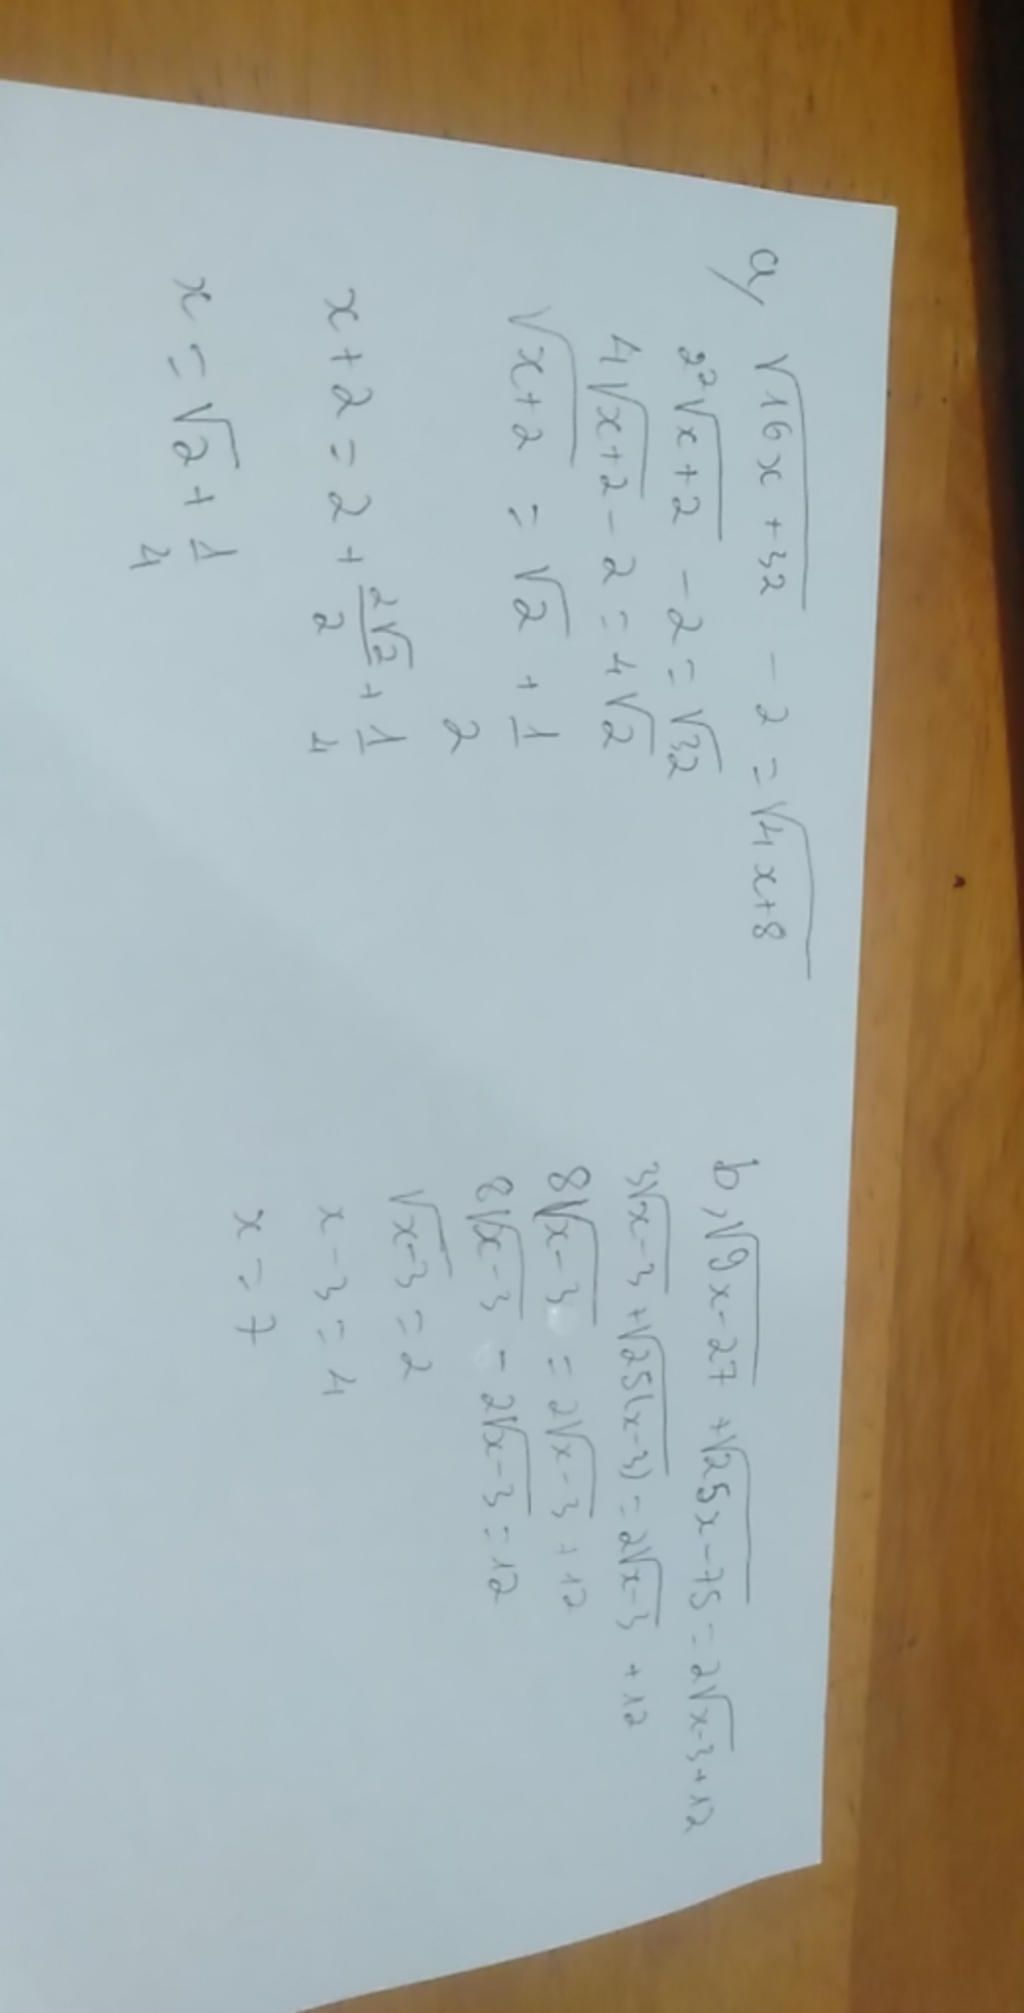 a, √16x+32 - 2 = √4x+8
2²√x+2 - 2 = √32
4√x+2 - 2 = 4√2
√x+2 = √2 + 1/2
x+2 = 2 + 2√2/2 + 1/4
x = √2 + 1/4
b, √9x-27 + √25x-75 = 2√x-3 + 12
3√x-3 + √25(x-3) = 2√x-3 + 12
8√x-3 = 2√x-3 + 12
8√x-3 - 2√x-3 = 12
√x-3 = 2
x-3 = 4
x = 7